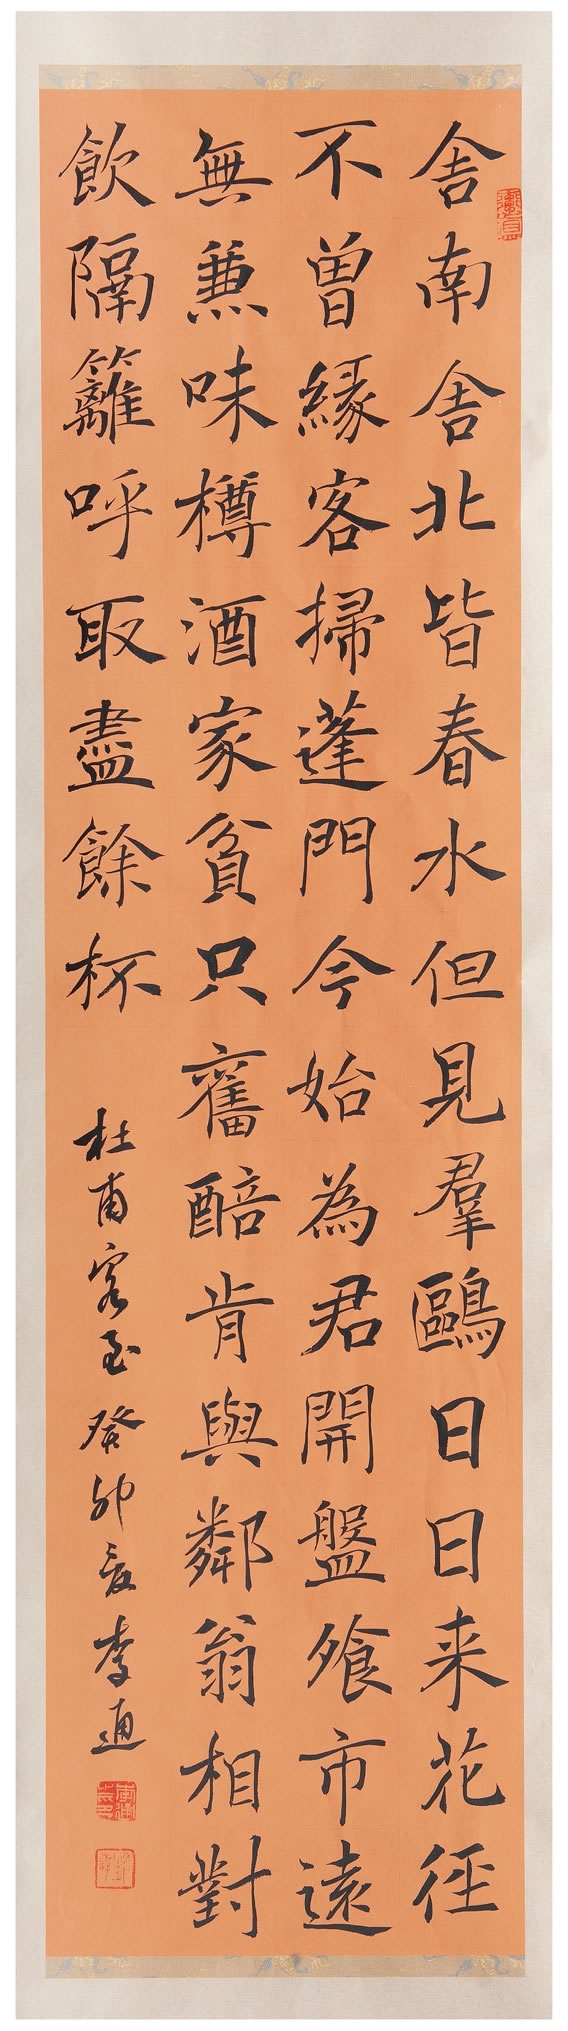 舎南舎北皆春水但見羣鷗日日来花徑
不曾緣客掃蓬門今始為君開盤飧市遠
無兼味樽酒家貧只舊醅肯與鄰翁相對
飲隔籬呼取盡餘杯
杜甫客至癸卯夏李通